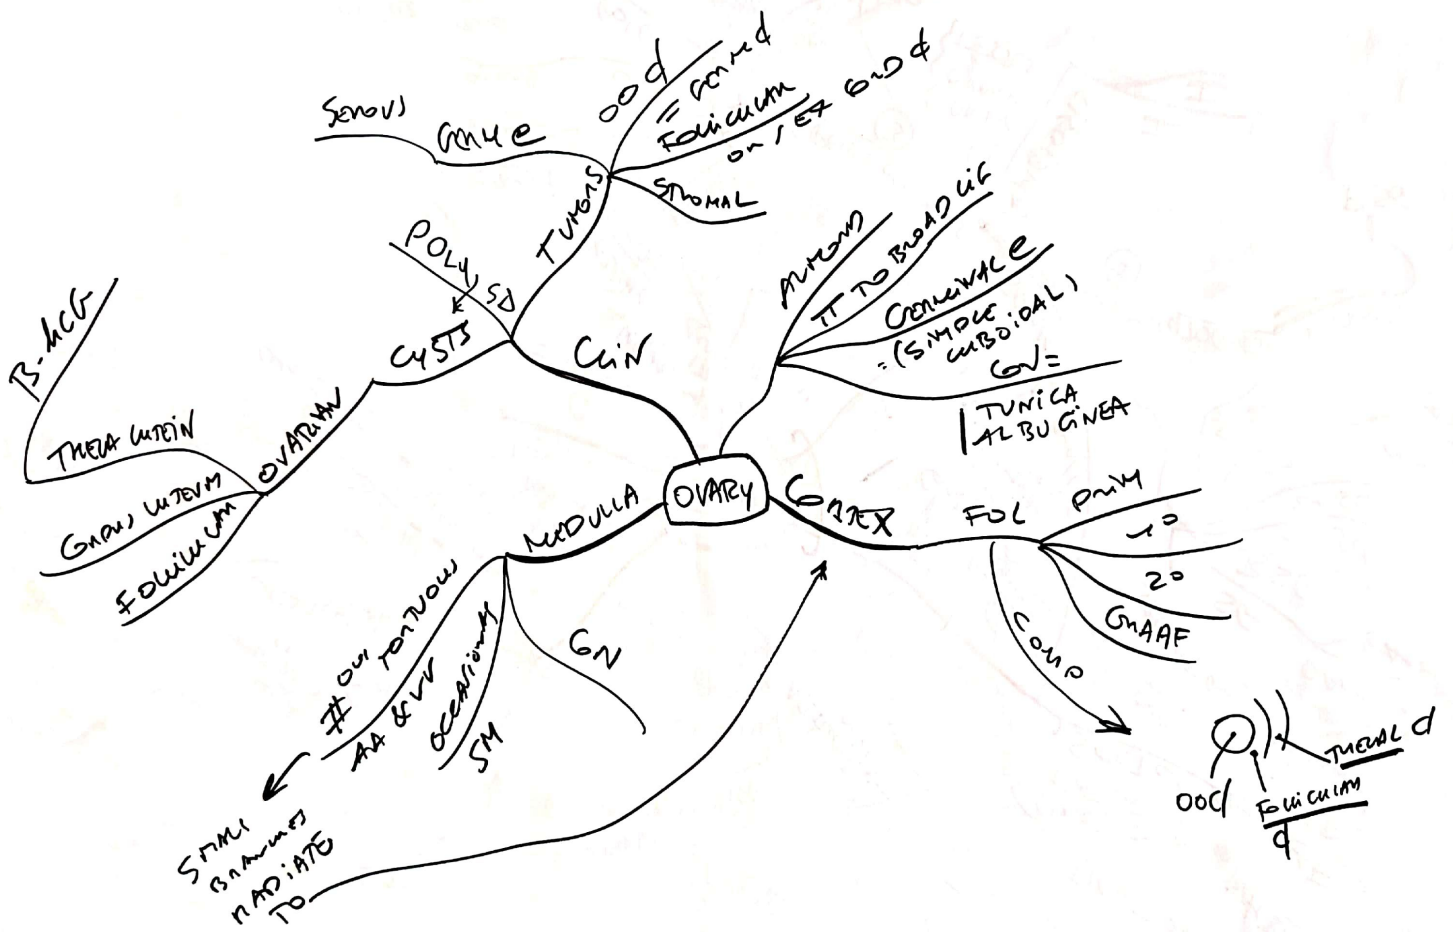 OVARY
CLIN
TUMORS
OO
= GERM
FOLLICULAR
OR SEX CORD
STROMAL
GERM e
SEROUS
POLY
CYSTS
OVARIAN
THECA LUTEIN
B-hCG
CORPUS LUTEUM
FOLLICULAR
ALMOND
TT TO BROAD LIG
GERMINAL e
= (SIMPLE
CUBOIDAL)
COV =
TUNICA
ALBUGINEA
CORTEX
FOL
PRIM
1°
2°
GRAAF
COMP
OO
FOLLICULAR
THECAL
MEDULLA
# OUS TORTUOUS
AA & VV
OCCASIONAL
SM
SMALL
BRANCHES
RADIATE
TO